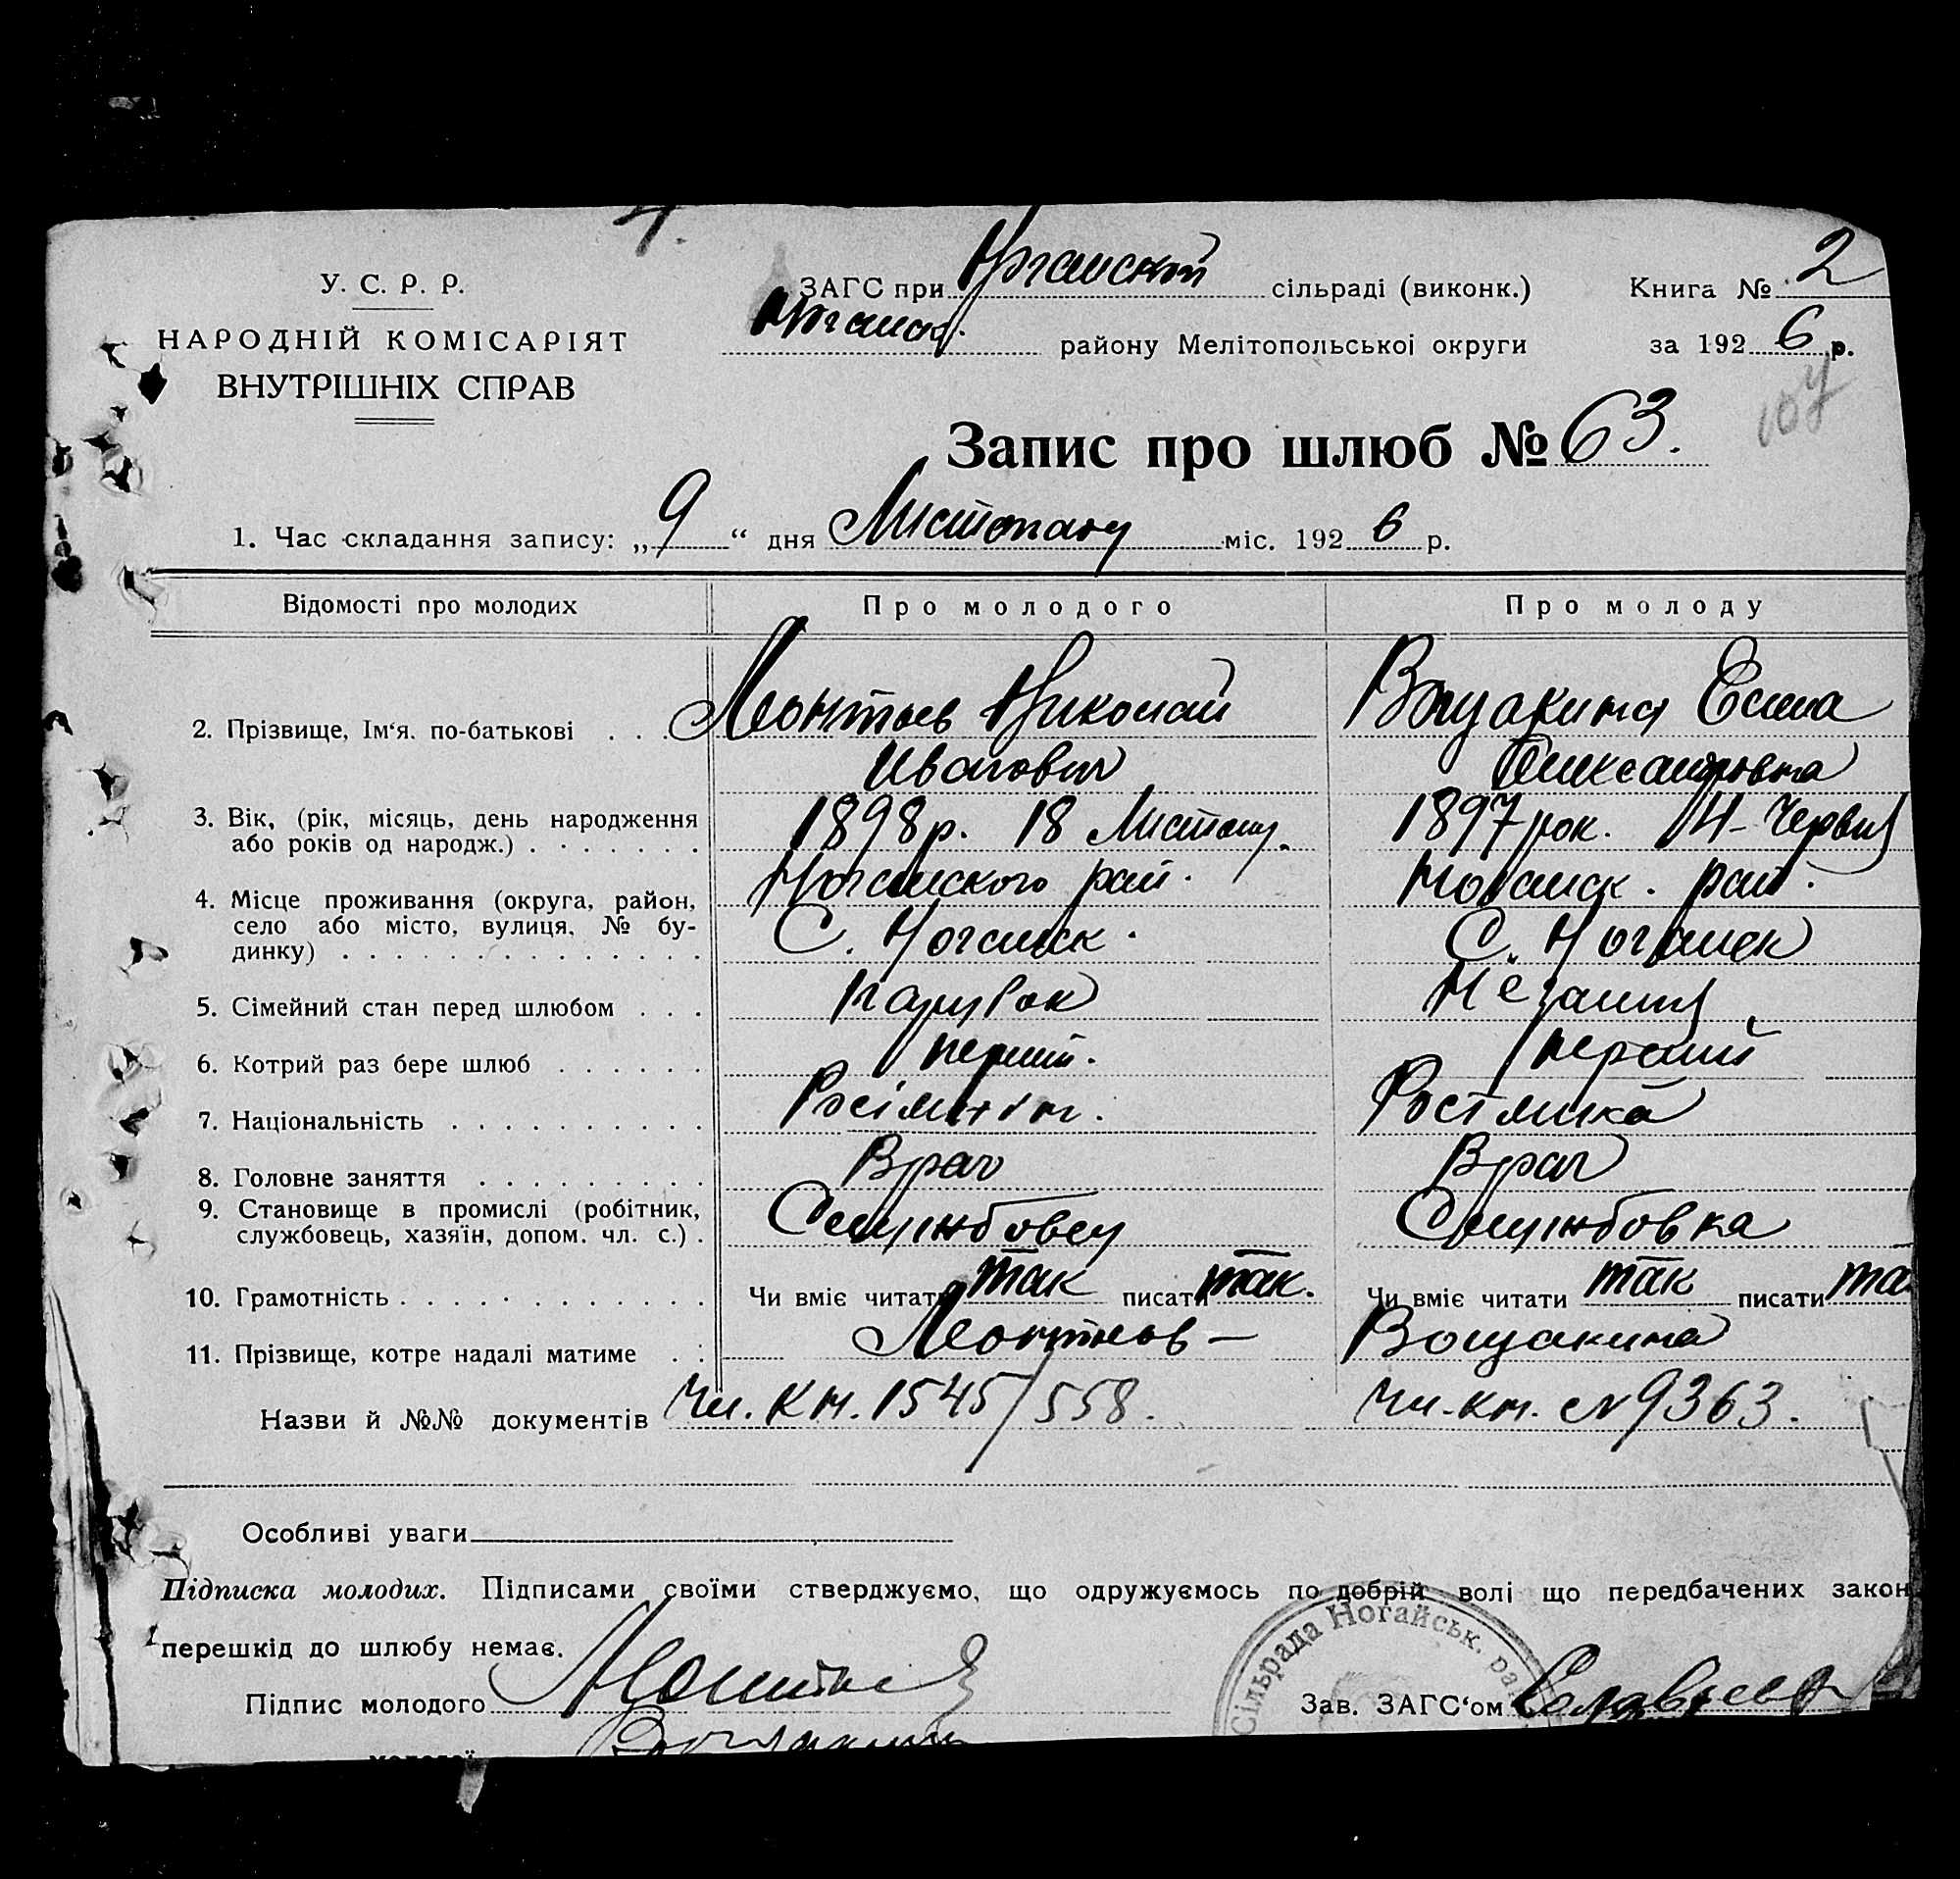 У. С. Р. Р.
НАРОДНІЙ КОМІСАРІЯТ
ВНУТРІШНІХ СПРАВ
ЗАГС при Ногайській сільраді (виконк.)
Книга № 2
Ногайськ. району Мелітопольської округи
за 192 6 р.
107
Запис про шлюб № 63.
1. Час складання запису: „ 9 “ дня Листопаду міс. 192 6 р.
Відомості про молодих Про молодого Про молоду
2. Прізвище, Ім‘я, по-батькові Леонтьев Николай Вощакина Елена
Иванович Александровна
3. Вік, (рік, місяць, день народження 1898 р. 18 Листопад. 1897 рок. 14 - Червня
або років од народж.)
4. Місце проживання (округа, район, Ногайського рай. Ногайск. рай.
село або місто, вулиця, № бу-
динку) С. Ногайск. С. Ногайск
5. Сімейний стан перед шлюбом парубок
6. Котрий раз бере шлюб перший. перший
7. Національність
8. Головне заняття Врач Врач
9. Становище в промислі (робітник,
службовець, хазяїн, допом. чл. с.) Службовец Службовка
10. Грамотність Чи вміє читати так писати так. Чи вміє читати так писати та
11. Прізвище, котре надалі матиме Леонтьев — Вощакина
Назви й №№ документів Чл. кн. 1545/558. Чл. кн. № 9363.
Особливі уваги
Підписка молодих. Підписами своїми стверджуємо, що одружуємось по добрій волі що передбачених закон
перешкід до шлюбу немає.
Сільрада Ногайськ. рай
Підпис молодого Леонтьев Зав. ЗАГС‘ом
молодої Вощакина